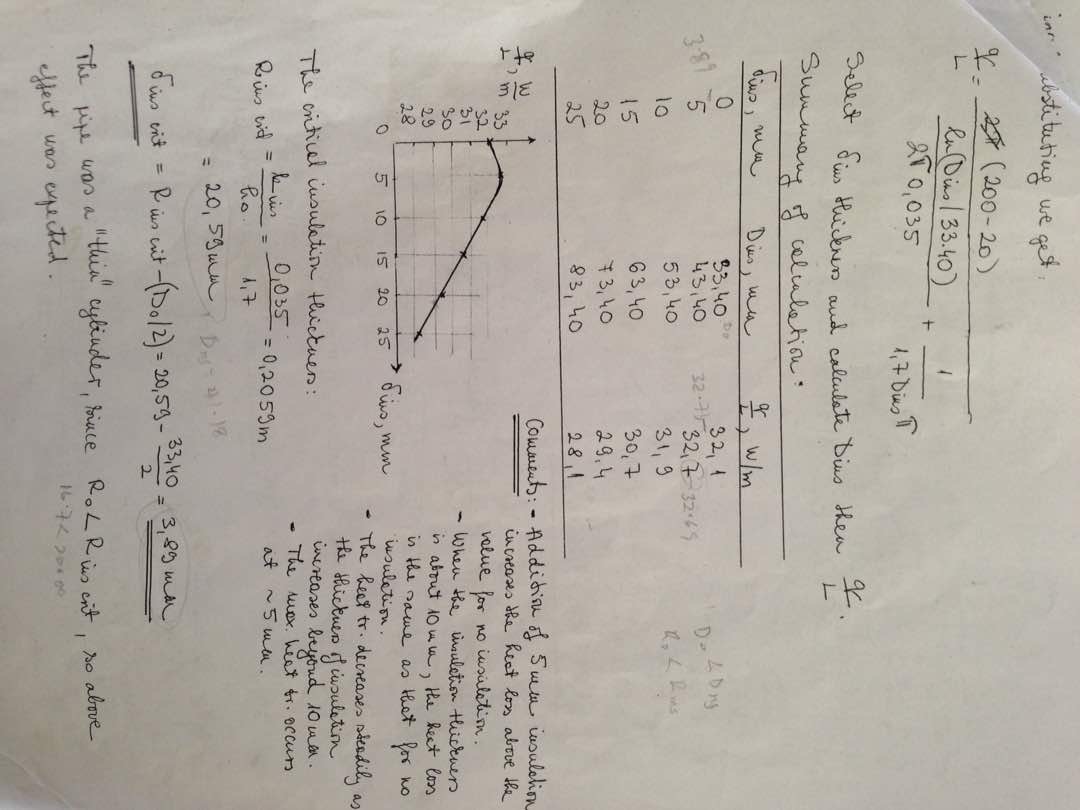 substituting we get.
q/L = (200-20) / ( ln(Dins/33.40) / 2π 0,035 + 1 / 1,7 Dins π )
Select δins thickness and calculate Dins then q/L.
Summary of calculation:
δins, mm Dins, mm q/L, W/m
0 33,40 32,1
5 43,40 32,7
10 53,40 31,9
15 63,40 30,7
20 73,40 29,4
25 83,40 28,1
3.89
Do
32.75
32.69
Do < Dins
Ro < Rins
q/L, W/m
33
32
31
30
29
28
0 5 10 15 20 25 δins, mm
Comments: - Addition of 5mm insulation
increases the heat loss above the
value for no insulation.
- When the insulation thickness
is about 10mm, the heat loss
is the same as that for no
insulation.
- The heat tr. decreases steadily as
the thickness of insulation
increases beyond 10mm.
- The max. heat tr. occurs
at ~ 5mm.
The critical insulation thickness:
Rins crit = kins/ho = 0,035/1,7 = 0,2059m
= 20,59mm, Dins = 41.18
δins crit = Rins crit - (Do/2) = 20,59 - 33,40/2 = 3,89mm
The pipe was a "thin" cylinder, since Ro < Rins crit, so above
effect was expected.